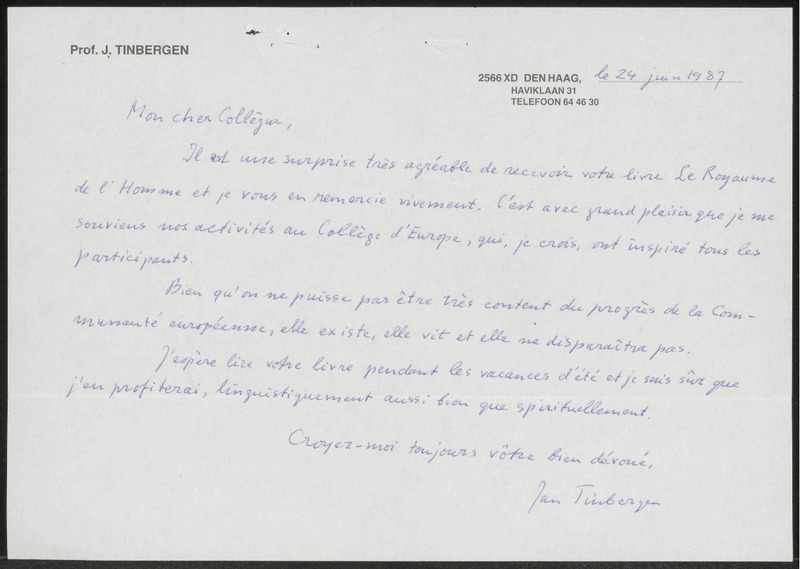 Prof. J. TINBERGEN
2566 XD DEN HAAG, le 24 juin 1987
HAVIKLAAN 31
TELEFOON 64 46 30
Mon cher Collègue,
Il est une surprise très agréable de recevoir votre livre Le Royaume
de l'Homme et je vous en remercie vivement. C'est avec grand plaisir que je me
souviens nos activités au Collège d'Europe, qui, je crois, ont inspiré tous les
participants.
Bien qu'on ne puisse pas être très content du progrès de la Com-
munauté européenne, elle existe, elle vit et elle ne disparaîtra pas.
J'espère lire votre livre pendant les vacances d'été et je suis sûr que
j'en profiterai, linguistiquement aussi bien que spirituellement.
Croyez-moi toujours vôtre bien dévoué,
Jan Tinbergen